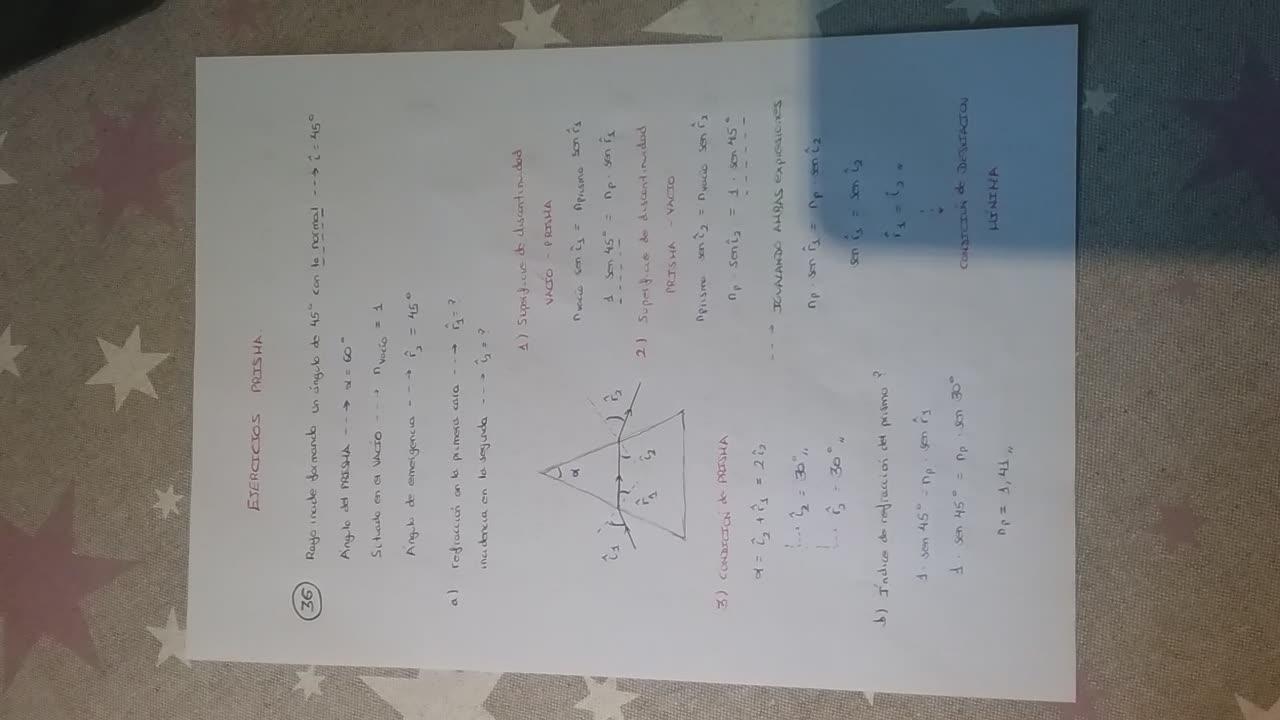 EJERCICIOS PRISMA.
36 Rayo incide formando un ángulo de 45° con la normal ---> î = 45°
Ángulo del PRISMA ---> α = 60°
Situado en el VACIO ---> n vacío = 1
Ángulo de emergencia ---> r̂2 = 45°
a) refracción en la primera cara ---> r̂1 = ?
incidencia en la segunda ---> î2 = ?
α
î1
r̂1
î2
r̂2
1) Superficie de discontinuidad
VACIO - PRISMA
n vacío sen î1 = n prisma sen r̂1
1 sen 45° = np . sen r̂1
2) Superficie de discontinuidad
PRISMA - VACIO
n prisma sen î2 = n vacío sen r̂2
np . sen î2 = 1 sen 45°
---> IGUALANDO AMBAS EXPRESIONES
np . sen r̂1 = np . sen î2
sen r̂1 = sen î2
r̂1 = î2 "
CONDICION de DESVIACION
MINIMA
3) CONDICION de PRISMA
α = î2 + r̂1 = 2 î2
î2 = 30° "
r̂1 = 30° "
b) Índice de refracción del prisma?
1 . sen 45° = np . sen r̂1
1 . sen 45° = np . sen 30°
np = 1,41 "